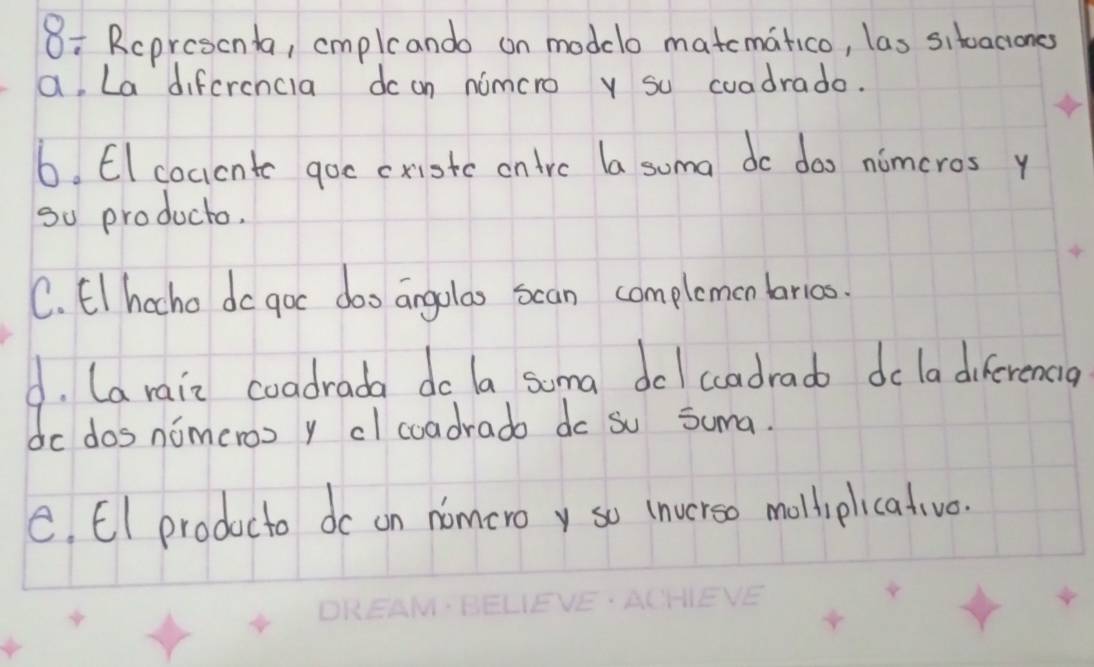 8- Representa, empleando un modelo matemático, las situaciones
a. La diferencia de un número y su cuadrado.
b. El cociente que existe entre la suma de dos números y
su producto.
C. El hecho de que dos ángulos sean complementarios.
d. La raíz cuadrada de la suma del cuadrado de la diferencia
de dos números y el cuadrado de su suma.
e. El producto de un número y su inverso multiplicativo.
DREAM · BELIEVE · ACHIEVE